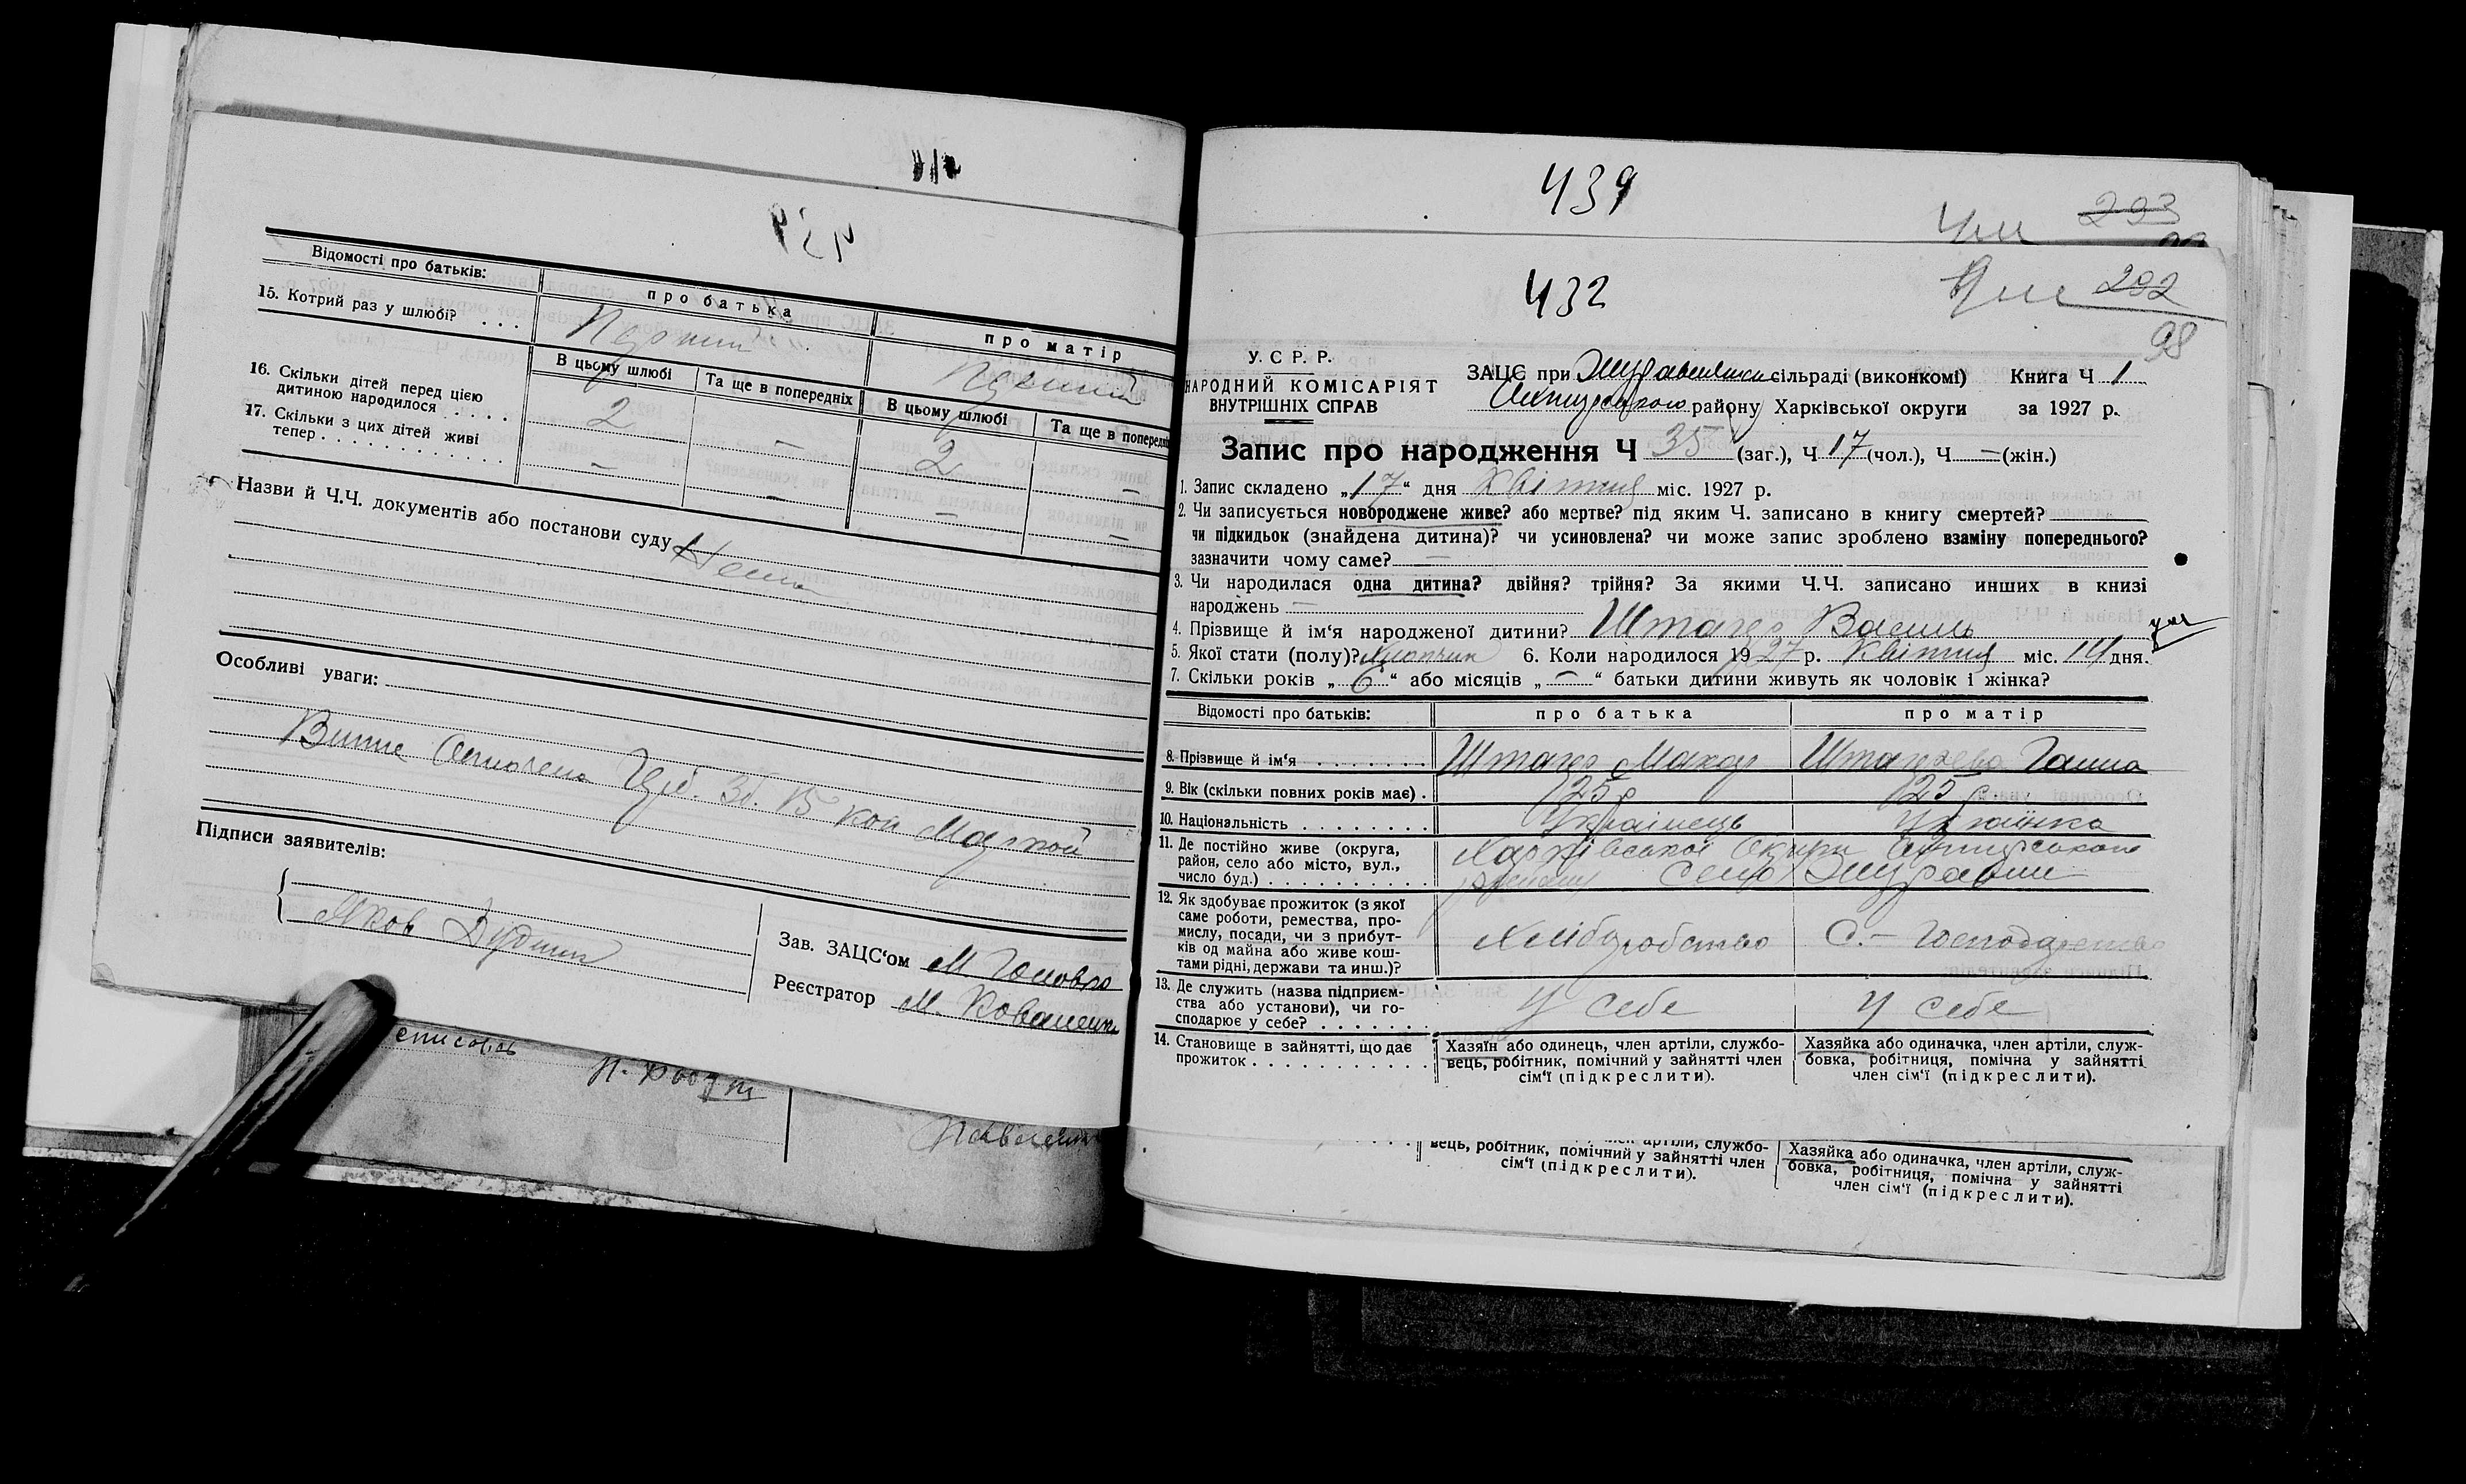 Відомості про батьків: про батька про матір
15. Котрий раз у шлюбі? . . . Первий Первий
В цьому шлюбі Та ще в попередніх В цьому шлюбі Та ще в попередніх
16. Скільки дітей перед цією
дитиною народилося . . . . . 2 — 2 —
17. Скільки з цих дітей живі
тепер . . . . . . . . . . . — — — —
Назви й Ч.Ч. документів або постанови суду Нема
Особливі уваги:
Виттє Гер. Зб. 15 коп Маркой
Підписи заявителів:
Яков Дудник
Зав. ЗАЦС‘ом М Головко
Реєстратор М. Коваленко
439
293
432
292
98
У. С Р. Р.
НАРОДНИЙ КОМІСАРІЯТ
ВНУТРІШНІХ СПРАВ
ЗАЦС при сільраді (виконкомі) Книга Ч 1
Охтирського району Харківської округи за 1927 р.
Запис про народження Ч 35 (заг.), Ч 17 (чол.), Ч — (жін.)
1. Запис складено „17“ дня Квітня міс. 1927 р.
2. Чи записується новороджене живе? або мертве? під яким Ч. записано в книгу смертей?
чи підкидьок (знайдена дитина)? чи усиновлена? чи може запис зроблено взаміну попереднього?
зазначити чому саме? —
3. Чи народилася одна дитина? двійня? трійня? За якими Ч.Ч. записано инших в книзі
народжень —
4. Прізвище й ім‘я народженої дитини? Штагер Василь
5. Якої стати (полу)? Хлопчик 6. Коли народилося 1927 р. Квітня міс. 14 дня.
7. Скільки років „6“ або місяців „—“ батьки дитини живуть як чоловік і жінка?
Відомості про батьків: про батька про матір
8. Прізвище й ім‘я . . . . . . . Штагер Макар Штагрева Ганна
9. Вік (скільки повних років має) . 25 р 25 р.
10. Національність . . . . . . . . Українець Українка
11. Де постійно живе (округа,
район, село або місто, вул.,
число буд.) . . . . . . . . . . .
Харківської Округи Охтирського
району Село Журавни
12. Як здобуває прожиток (з якої
саме роботи, ремества, про-
мислу, посади, чи з прибут-
ків од майна або живе кош-
тами рідні, держави та инш.)?
Хліборобство С.- Господарство
13. Де служить (назва підприєм-
ства або установи), чи го-
сподарює у себе? . . . . . . .
У себе У себе
14. Становище в зайнятті, що дає
прожиток . . . . . . . . . . . .
Хазяїн або одинець, член артіли, службо-
вець, робітник, помічний у зайнятті член
сім‘ї (підкреслити).
Хазяйка або одиначка, член артіли, служ-
бовка, робітниця, помічна у зайнятті
член сім‘ї (підкреслити).
вець, робітник, помічний у зайнятті член
сім‘ї (підкреслити).
Хазяйка або одиначка, член артіли, служ-
бовка, робітниця, помічна у зайнятті
член сім‘ї (підкреслити).